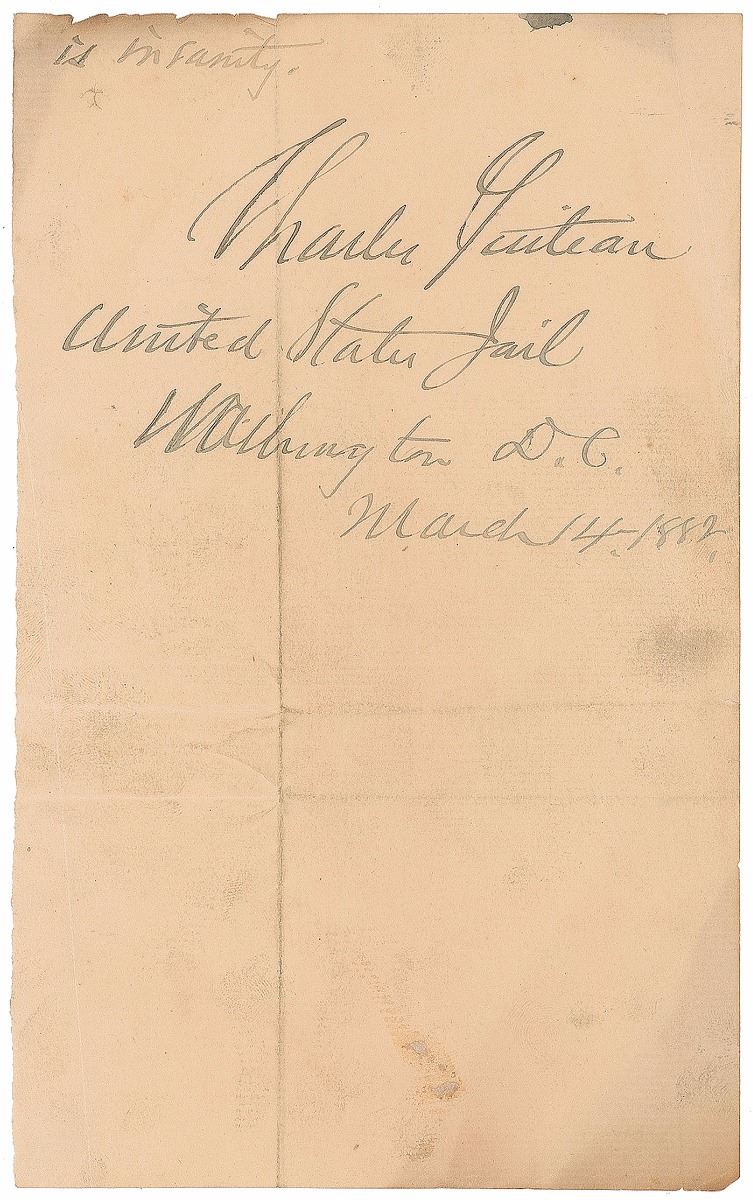 is insanity.
Charles Guiteau
United States Jail
Washington D.C.
March 14. 1882.